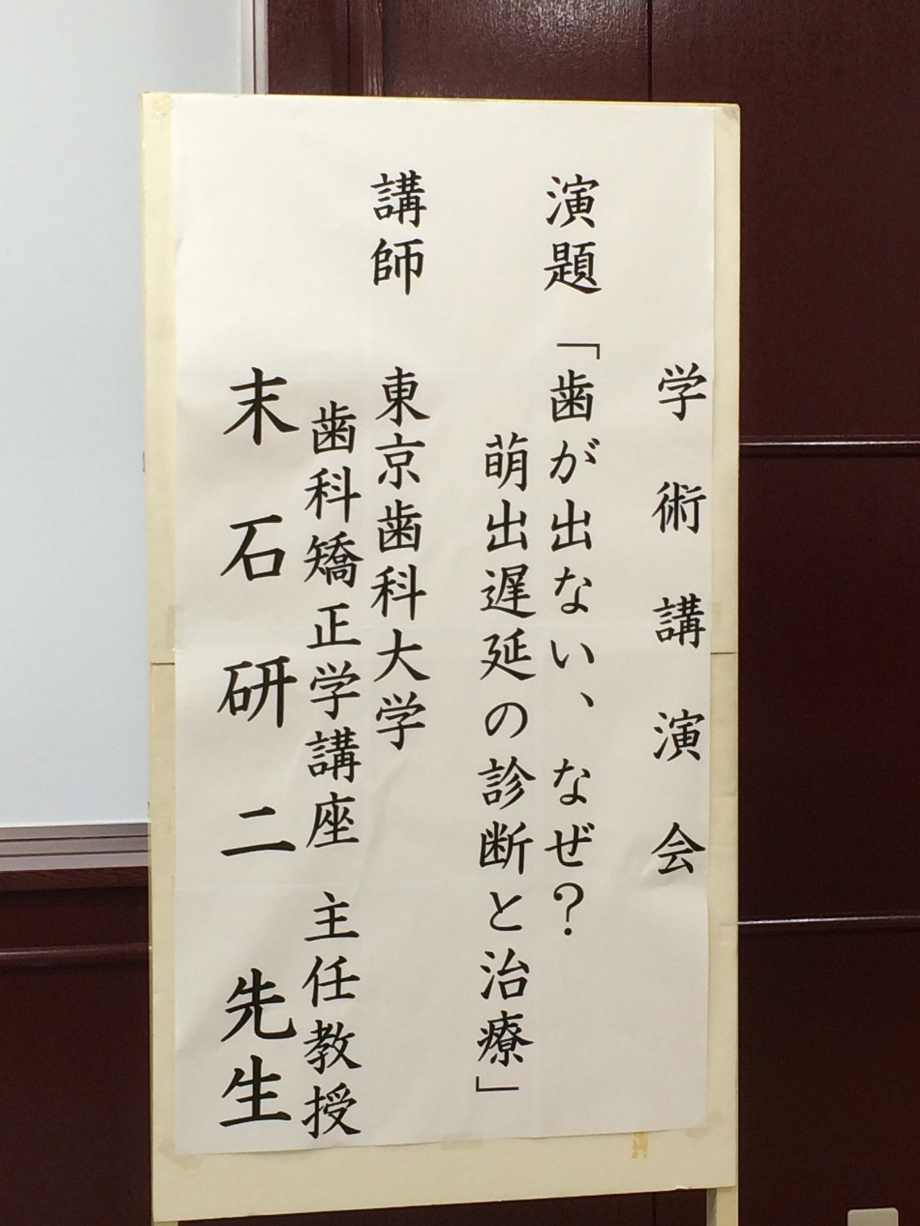 学術講演会
演題「歯が出ない、なぜ?
萌出遅延の診断と治療」
講師 東京歯科大学
歯科矯正学講座 主任教授
末石研二 先生